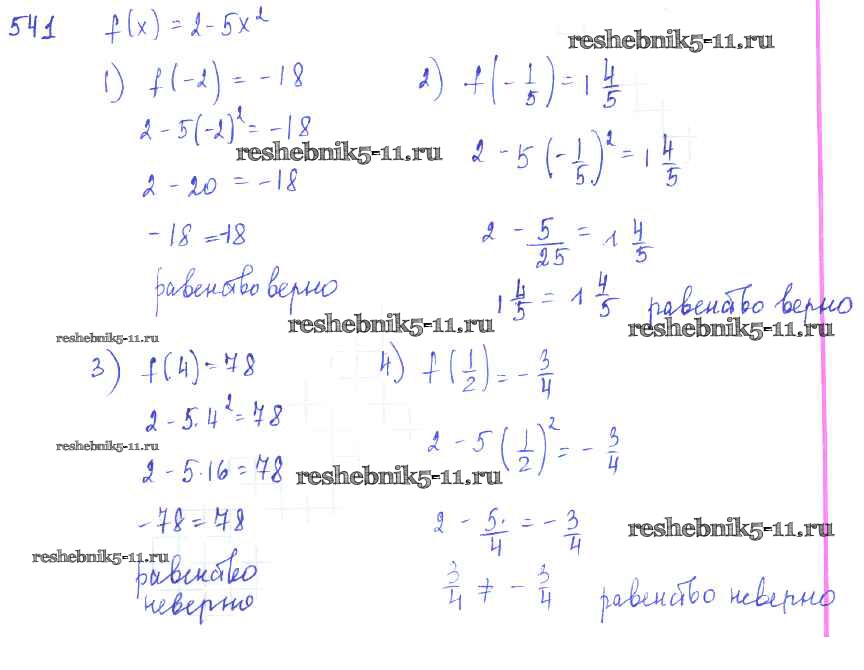 541 f(x) = 2 - 5x²
reshebnik5-11.ru
1) f(-2) = -18
2 - 5(-2)² = -18
reshebnik5-11.ru
2 - 20 = -18
-18 = -18
равенство верно
2) f(-1/5) = 1 4/5
2 - 5(-1/5)² = 1 4/5
2 - 5/25 = 1 4/5
1 4/5 = 1 4/5 равенство верно
reshebnik5-11.ru
reshebnik5-11.ru
reshebnik5-11.ru
3) f(4) = 78
2 - 5·4² = 78
reshebnik5-11.ru
2 - 5·16 = 78
reshebnik5-11.ru
-78 = 78
reshebnik5-11.ru
равенство
неверно
4) f(1/2) = -3/4
2 - 5(1/2)² = -3/4
2 - 5·/4 = -3/4
reshebnik5-11.ru
3/4 ≠ -3/4 равенство неверно